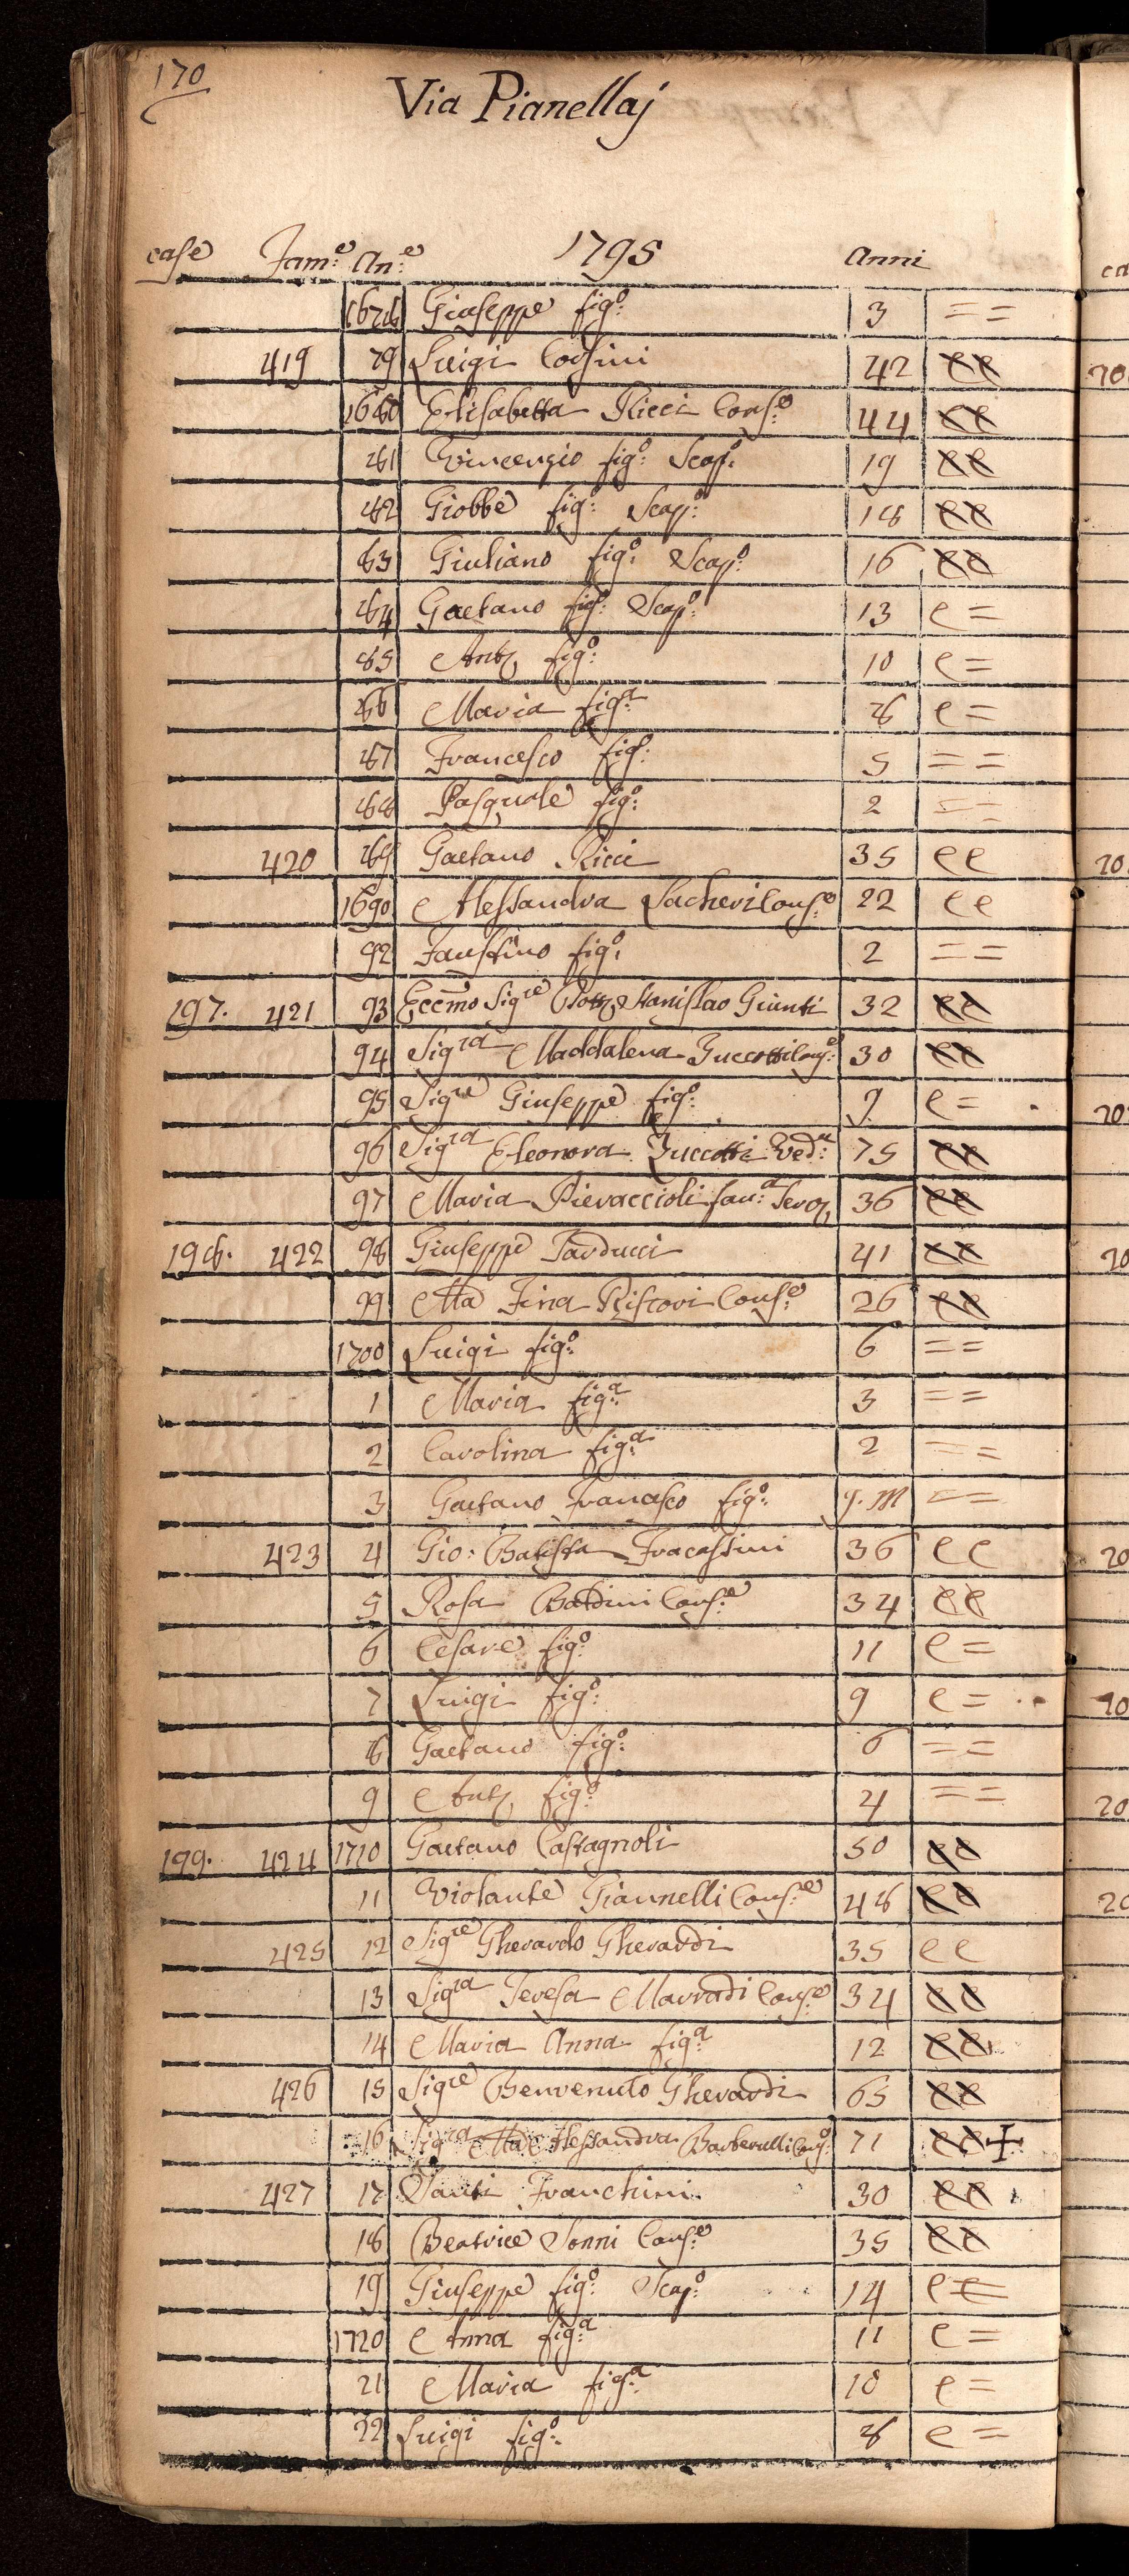 170
Via Pianellaj
case Fam:e An:e 1795 Anni
1678 Giuseppe fig:o 3 = =
419 79 Luigi Corsini 42 ee
1680 Elisabetta Ricci Cons:e 44 ee
81 Vincenzio fig:o Scap:o 19 ee
82 Giobbe fig:o Scap:o 18 ee
83 Giuliano fig:o Scap:o 16 ee
84 Gaetano fig:o Scap:o 13 e =
85 Ant fig:o 10 e =
86 Maria fig:a 8 e =
87 Francesco fig:o 5 = =
88 Pasquale fig:o 2 = =
420 89 Gaetano Ricci 35 ee
1690 Alessandra Cons:e 22 ee
92 Faustino fig:o 2 = =
197. 421 93 Eccmo Sigre Dott Stanislao Giunti 32 ee
94 Sigra Maddalena Zuccotti Cons:e 30 ee
95 Sigre Giuseppe fig:o 9 e =
96 Sigra Eleonora Zuccotti Ved:a 75 ee
97 Maria Pieraccioli fan:a Serv 36 ee
198. 422 98 Giuseppe Tarducci 41 ee
99 Ma Fina Ristori Cons:e 26 ee
1700 Luigi fig:o 6 = =
1 Maria fig:a 3 = =
2 Carolina fig:a 2 = =
3 Gaetano Francesco fig:o 9. M = =
423 4 Gio: Batista Fracassini 36 ee
5 Rosa Baldini Cons:e 34 ee
6 Cesare fig:o 11 e =
7 Luigi fig:o 9 e =
8 Gaetano fig:o 6 = =
9 Ant fig:o 4 = =
199. 424 1710 Gaetano Castagnoli 50 ee
11 Violante Giannelli Cons:e 48 ee
425 12 Sigre Gherardo Gherardi 35 ee
13 Sigra Teresa Marradi Cons:e 34 ee
14 Maria Anna fig:a 12 ee
426 15 Sigre Benvenuto Gherardi 65 ee
16 Sigra Ma Alessandra Barberulli Cons:e 71 ee +
427 17 Santi Franchini 30 ee
18 Beatrice Sonni Cons:e 35 ee
19 Giuseppe fig:o Scap:o 14 e =
1720 Anna fig:a 11 e =
21 Maria fig:a 10 e =
22 Luigi fig:o 8 e =